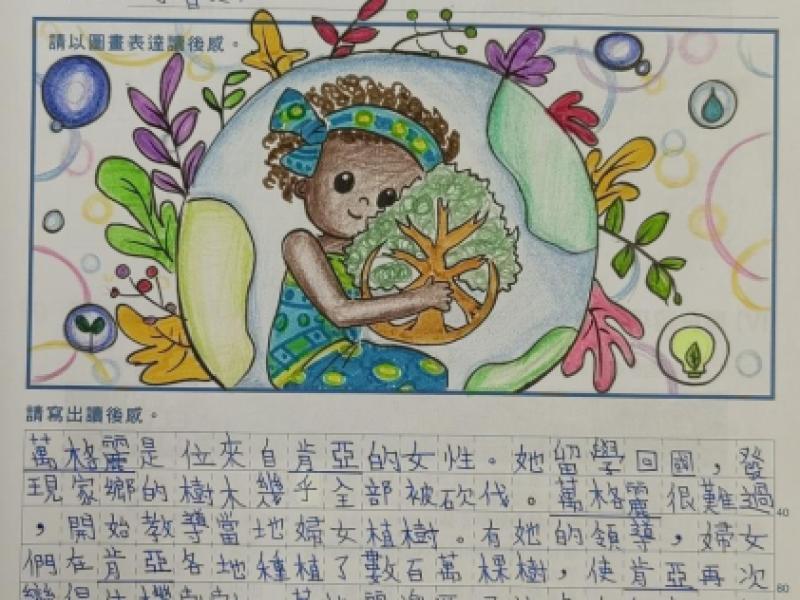 請以圖畫表達讀後感。
請寫出讀後感。
萬格麗是位來自肯亞的女性。她留學回國，發
現家鄉的樹木幾乎全部被砍伐。萬格麗很難過
40
，開始教導當地婦女植樹。有她的領導，婦女
們在肯亞各地種植了數百萬棵樹，使肯亞再次
80